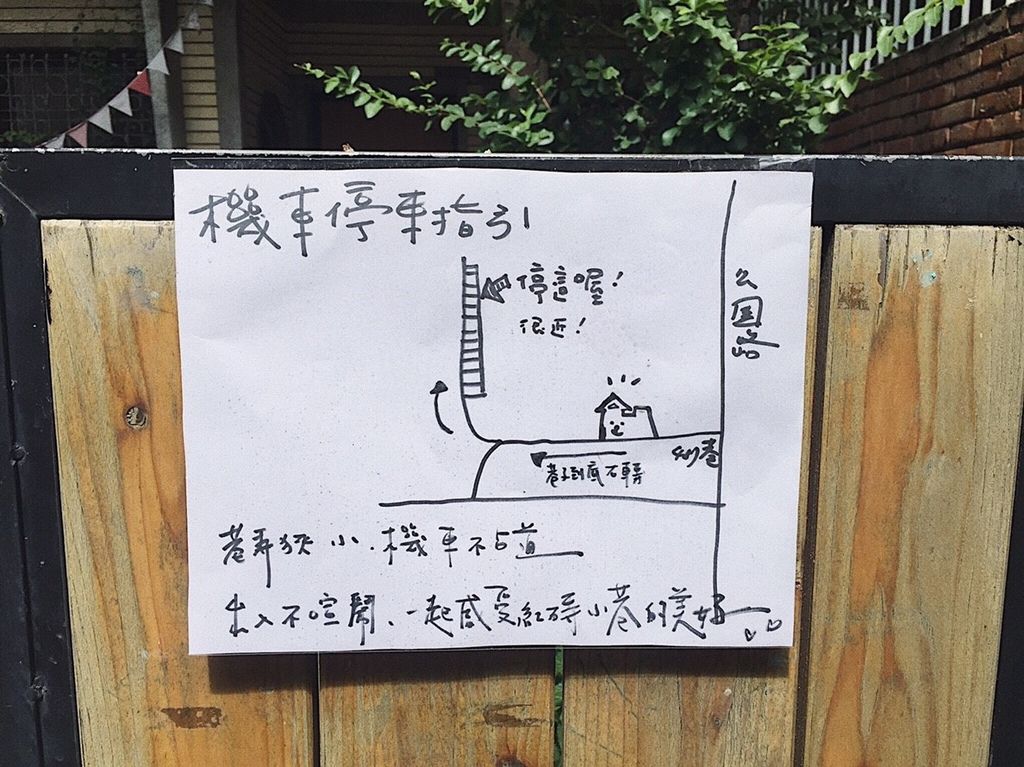 機車停車指引
停這喔!
很近!
公园路
巷子到底右轉
巷弄狹小.機車不占道
出入不喧鬧、一起感受紅磚小巷的美好